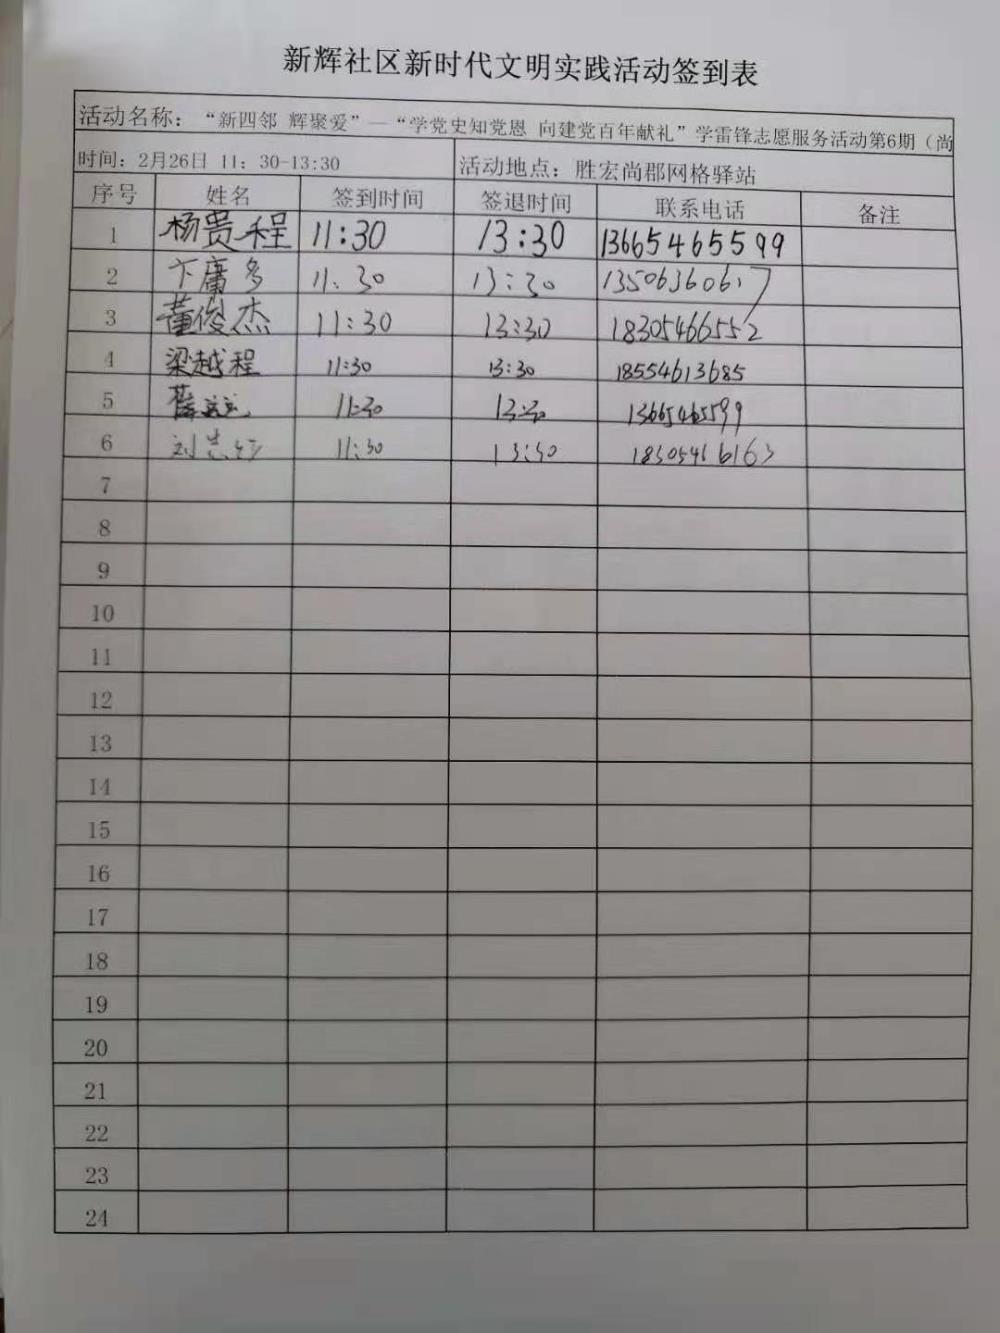 新辉社区新时代文明实践活动签到表
活动名称：“新四邻 辉聚爱”—“学党史知党恩 向建党百年献礼”学雷锋志愿服务活动第6期（尚
时间：2月26日 11：30-13:30 活动地点：胜宏尚郡网格驿站
序号 姓名 签到时间 签退时间 联系电话 备注
1 杨贵程 11:30 13:30 13665465599
2 卞庸多 11:30 13:30 13506360617
3 董俊杰 11:30 13:30 18305466552
4 梁越程 11:30 13:30 18554613685
5 11:30 13:30 13665465599
6 刘志 11:30 13:30 18305466163
7
8
9
10
11
12
13
14
15
16
17
18
19
20
21
22
23
24